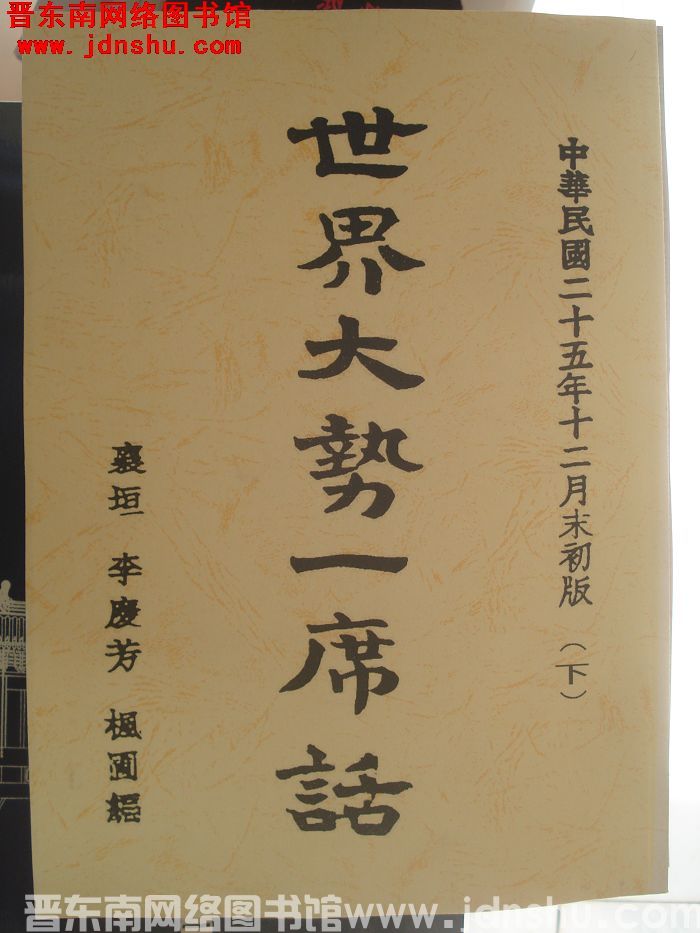 晋东南网络图书馆
www.jdnshu.com
中華民國二十五年十二月末初版 （下）
世界大勢一席話
襄垣 李慶芳 楓圃
晋东南网络图书馆www.jdnshu.com